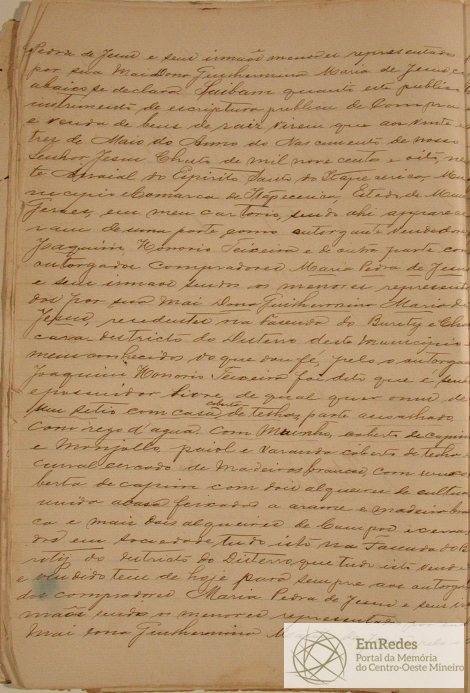 Pedra de Jesus e seus irmãos menores representado
por sua Mai Dona Guilhermina Maria de Jesus, c
abaixo se declara. Saibam quanto este publico
instrumento de escriptura publica de Compra
e venda de bens de raiz virem que aos vinte
tres de Maio do Anno do Nascimento de nosso
Senhor Jesus Christo de mil nove cento e oito, ne
te Arraial do Espirito Santo do Itapecerica, Mu
nicipio e Comarca de Itapecerica, Estado de Minas
Geraes, em meu cartorio, sendo ahi apparece
ram de uma parte como outorgante vendedor
Joaquim Honorio Teixeira e de outra parte como
outorgados compradores Maria Pedra de Jesus
e seus irmãos sendo os menores represent
dos por sua Mai Dona Guilhermina Maria de
Jesus, residentes na Fasenda do Burity e Cha
cara districto do Disterro deste municipio
meus conhecidos do que dou fé, pelo o outorg
Joaquim Honorio Teixeira foi dito que é senh
e possuidor livre de qual quer onus de
um sitio com casa coberta de telhas, parte assoalhada,
com rego d'agua, com Moinho, coberto de capim
e Monjollo paiol e varanda coberta de telha
curral cercado de Madeiras brancas, com uma
berta de capim com dois alqueires de cultura
unida a casa feixados a arame e madeira bran
ca e mais dois alqueires de Campos
em Sociedade tudo isto na Fasenda do B
do districto do Disterro que tudo isto vende
e vendido tem de hoje para sempre aos outorga
dos compradores Maria Pedra de Jesus e seus ir
mãos sendo os menores representados por sua
Mai dona Guilhermina
EmRedes
Portal da Memória
do Centro-Oeste Mineiro